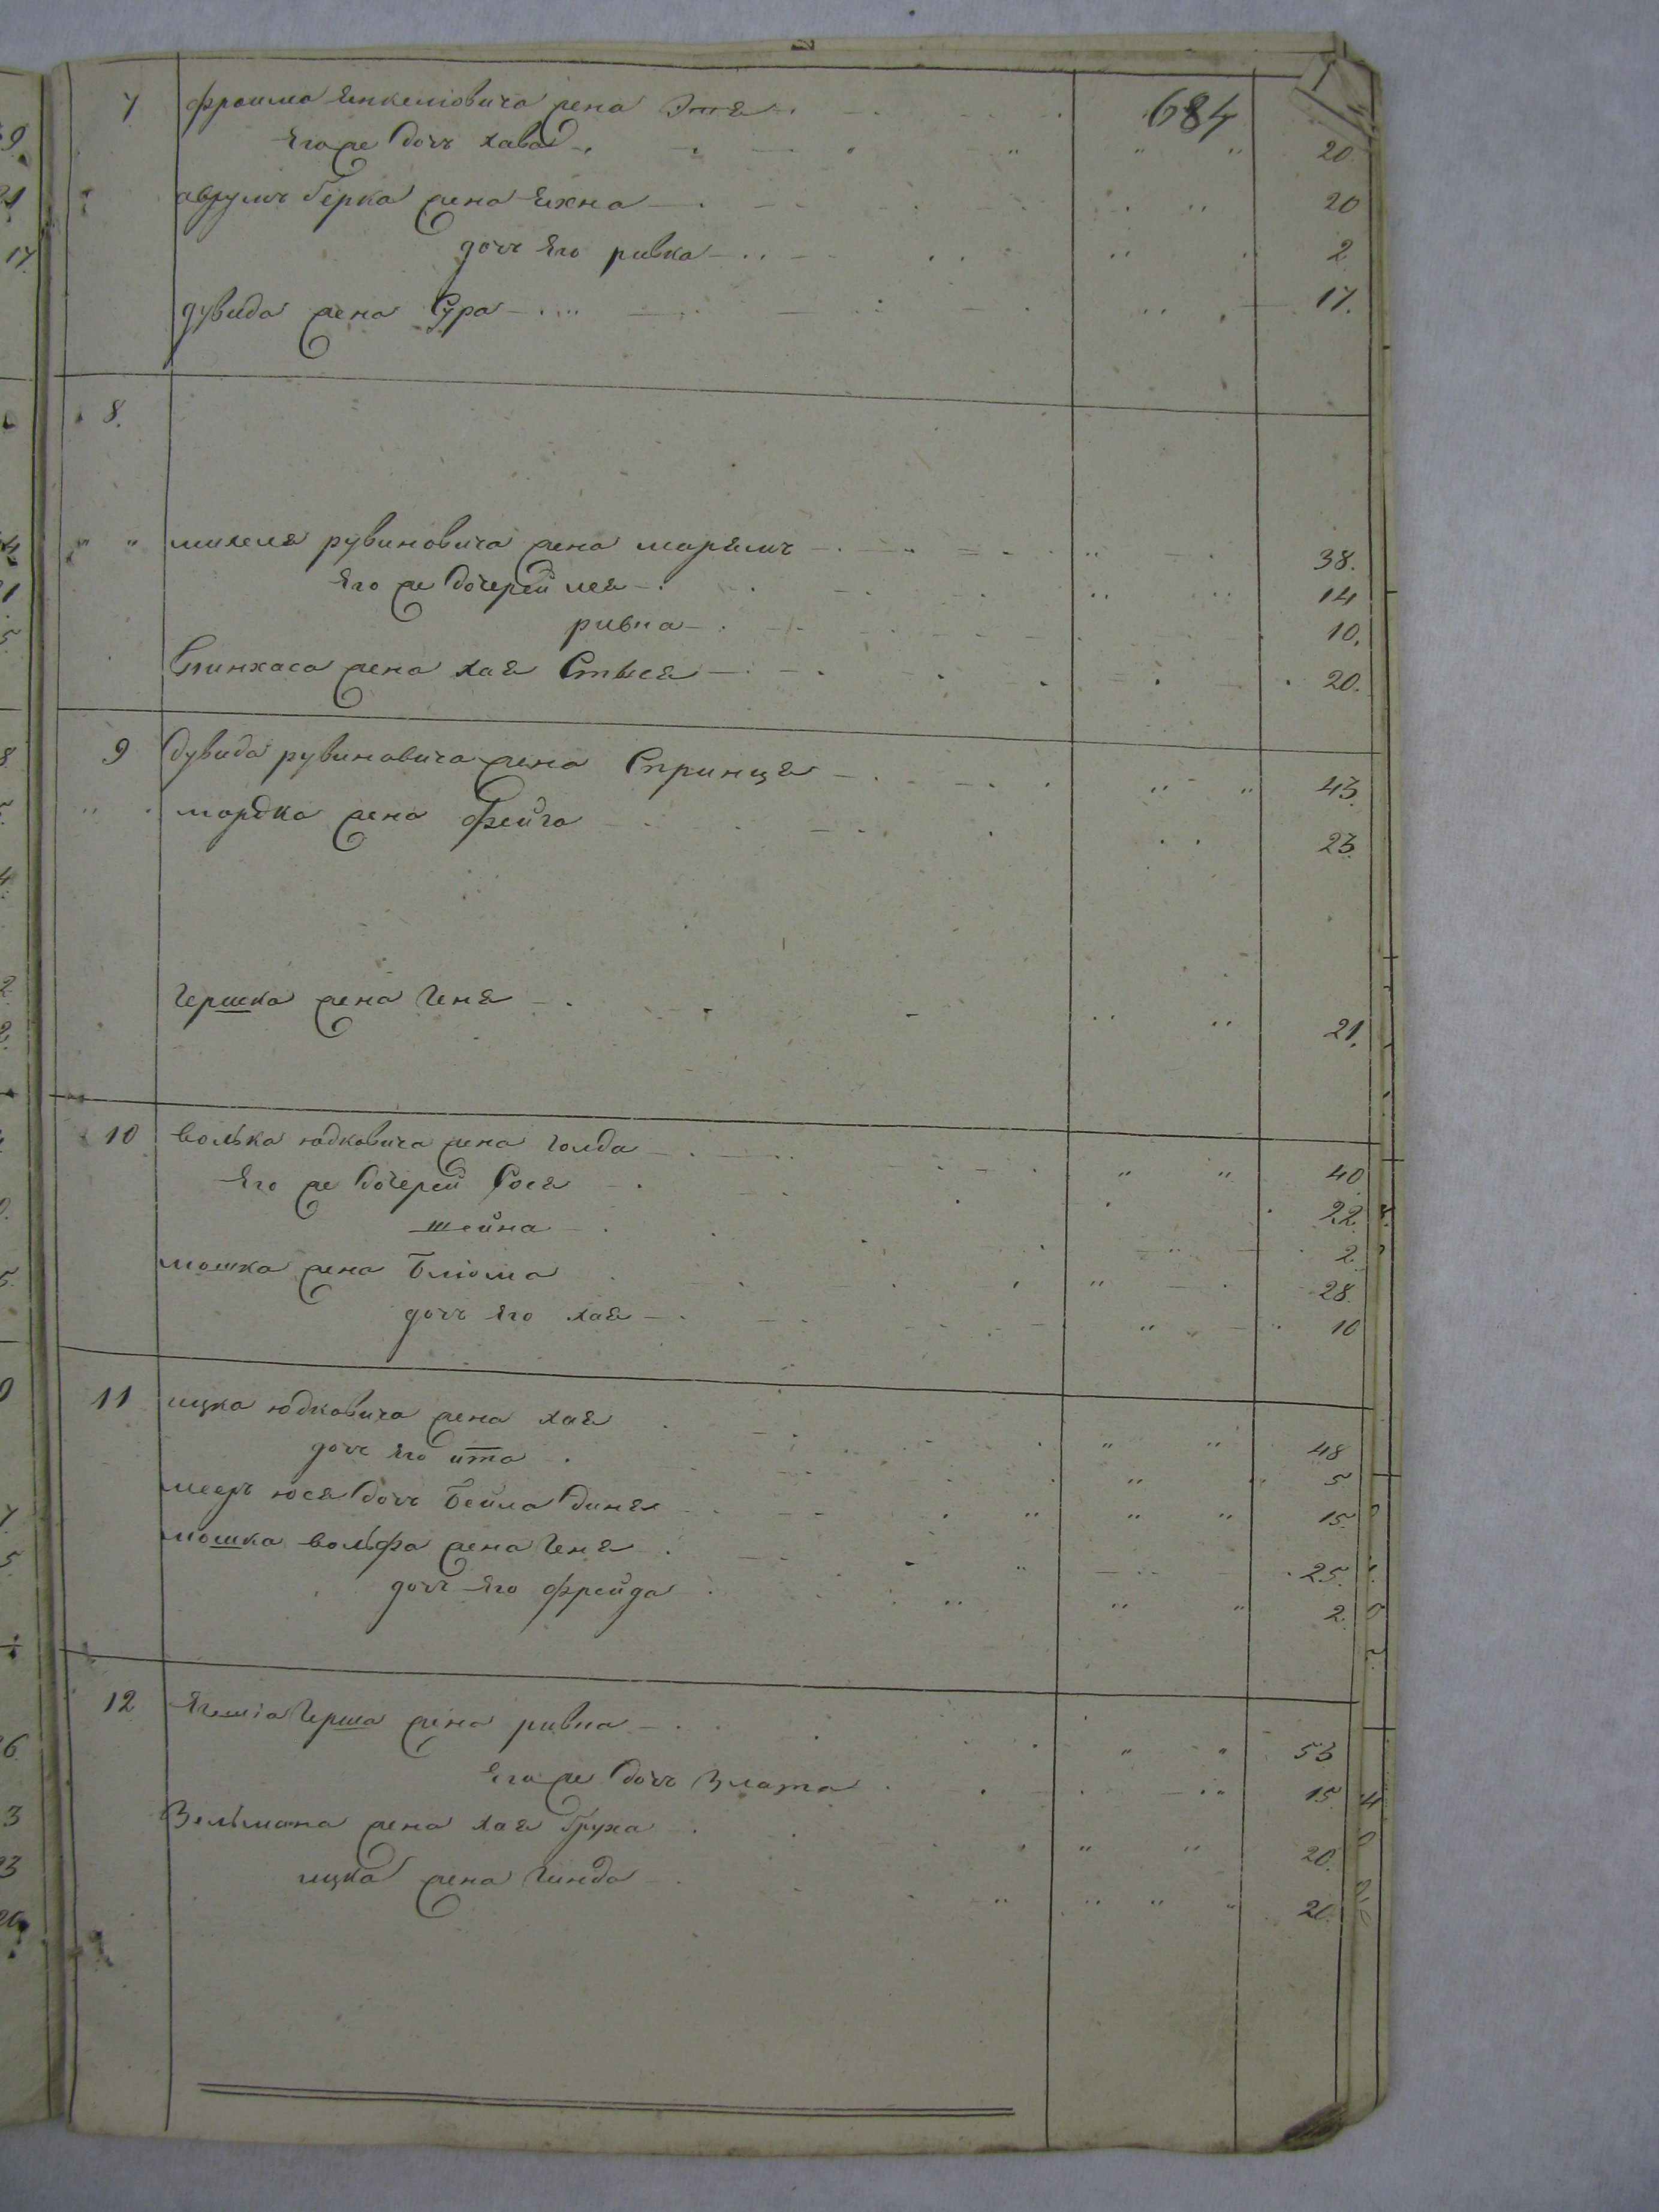 684
7 Фроима Янкелиовича жена Этя 
Его же дочь хава 20
аврумъ Берка жена Ехна 20
дочь Его ривка 2
дувида жена Сура 17.
8.
михеля рувиновича жена марямъ 38.
Его же дочерей лея 14
ривка 10.
пинхаса жена хая Стыся 20.
9 дувида рувиновича жена Спринця 43.
мордка жена Фейга 23.
Гершка жена Геня 21.
10 волька юдковича жена Голда 40
Его же дочерей Сося 22.
шейна 2
мошка жена Блюма 28.
дочь Его хая 10
11 ицка юдковича жена хая 48
дочь Его ита 5
меер юся дочь Бейла Диня 15.
мошка вольфа жена Геня 25.
дочь Его Фрейда 2.
12 Герша жена ривка 53
Его же дочь Злата 15
Зельмана жена хая Груха 20.
ицка жена Гинда